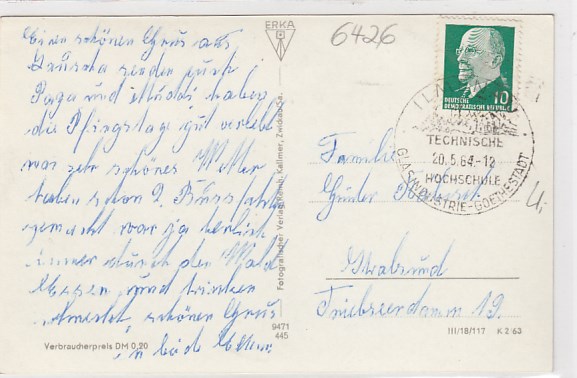 Einen schönen Gruß aus
Lauscha senden euch
Papa und Mutti, haben
die Pfingstage gut verlebt
war sehr schönes Wetter
haben schon 2. Busfahrt
gemacht war ja herlich
immer durch den Wald
Essen und trinken
schönen Gruß
Verbraucherpreis DM 0,20
ERKA
Fotografischer Verlag Konb. Kellmer, Zwickau/Sa.
9471
445
6426
10
DEUTSCHE
DEMOKRATISCHE REPUBLIK
TECHNISCHE
20.5.64.-12
HOCHSCHULE
GLASINDUSTRIE-GOETHESTADT
Familie
Günter
Stralsund
Tribseerdamm 19.
III/18/117 K 2/63